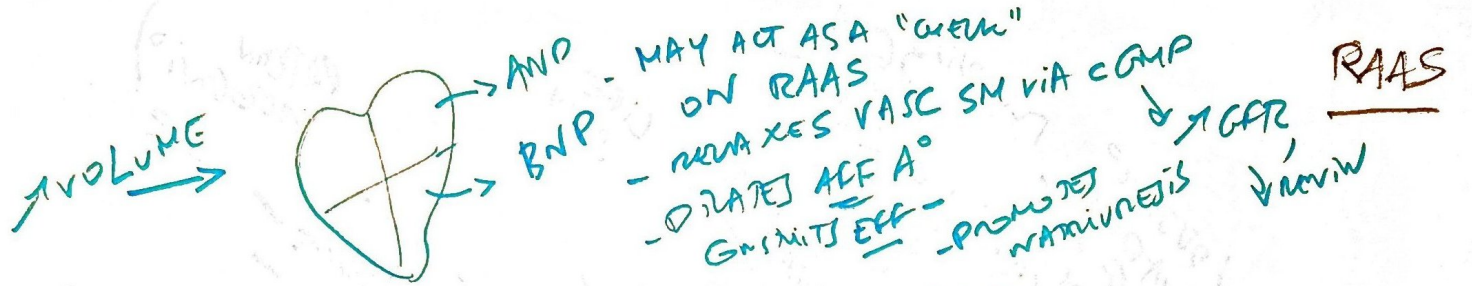 ↑VOLUME →
→ ANP
→ BNP
- MAY ACT AS A "CHECK"
ON RAAS
- RELAXES VASC SM VIA cGMP
- DILATES AFF A°
CONSTRICTS EFF
- PROMOTES
NATRIURESIS
↓ ↑GFR,
↓RENIN
RAAS